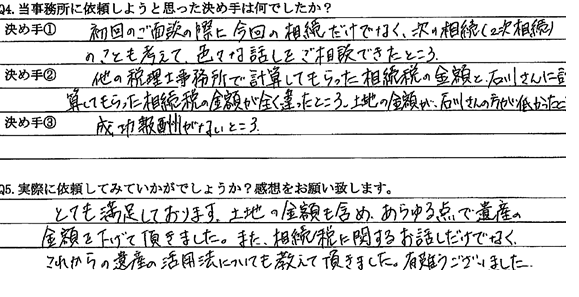 Q4. 当事務所に依頼しようと思った決め手は何でしたか?
決め手① 初回のご面談の際に今回の相続だけでなく、次の相続(2次相続)
のことも考えて、色々な話しをご相談できたところ
決め手② 他の税理士事務所で計算してもらった相続税の金額と、石川さんに計
算してもらった相続税の金額が全く違ったところ。土地の金額が、石川さんの方が低かったと
決め手③ 成功報酬がないところ
Q5. 実際に依頼してみていかがでしょうか?感想をお願い致します。
とても満足しております。土地の金額も含め、あらゆる点で遺産の
金額を下げて頂きました。また、相続税に関するお話しだけでなく、
これからの遺産の活用法についても教えて頂きました。有難うございました。